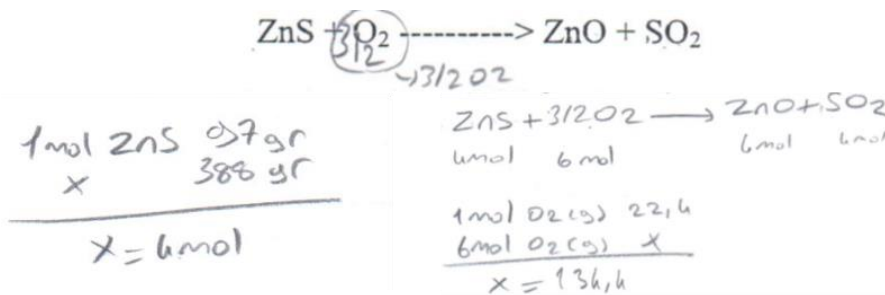 ZnS + 3/2 O2 ----------> ZnO + SO2
→ 3/2 O2
1 mol ZnS 97 gr
x 388 gr
x = 4 mol
ZnS + 3/2 O2 → ZnO + SO2
4 mol 6 mol 4 mol 4 mol
1 mol O2 (g) 22,4
6 mol O2 (g) x
x = 134,4